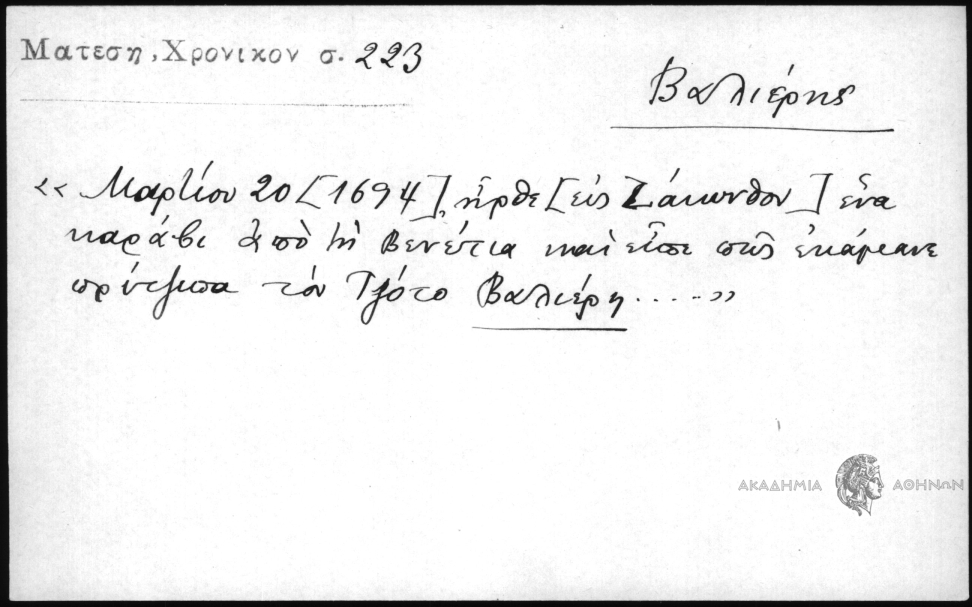 Ματεση, Χρονικον σ. 223
Βαλιέρης
«Μαρτίου 20 [1694], ἦρθε [εἰς Ζάκυνθον] ἕνα
καράβι ἀπὸ τὴ Βενέτια καὶ εἶπε πῶς ἐκάμανε
πρίντζιπα τὸν Τζόρτο Βαλιέρη.....»
ΑΚΑΔΗΜΙΑ ΑΘΗΝΩΝ